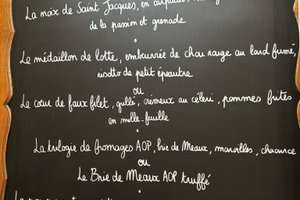 La noix de Saint Jacques, en carpaccio,
de la passion et grenade
Le médaillon de lotte, embeurrée de chou rouge au lard fumé,
risotto de petit épeautre
ou
Le cœur de faux filet, grillé, crémeux au céleri, pommes frites
en mille-feuille
La trilogie de fromages AOP, brie de Meaux, maroilles, chaource
ou
Le Brie de Meaux AOP truffé